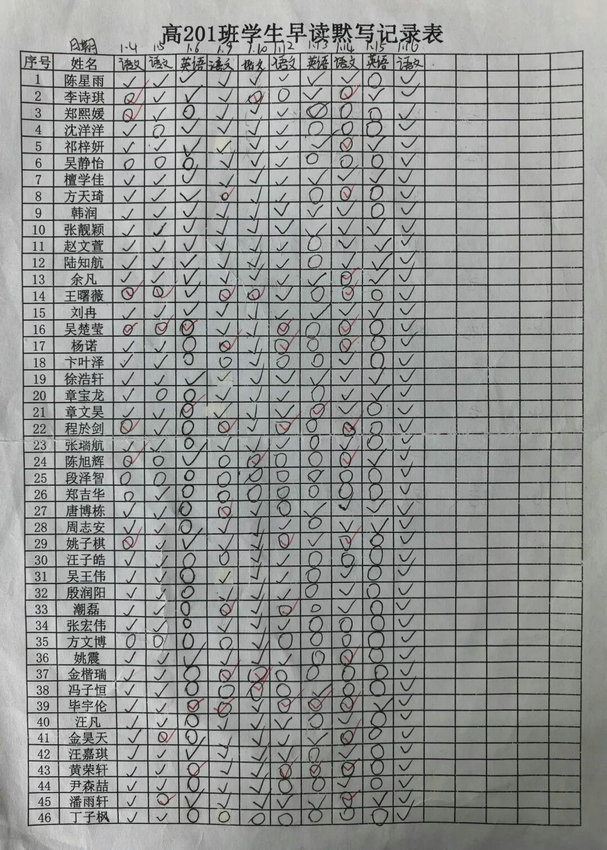 高201班学生早读默写记录表
日期 1.4 1.5 1.6 1.9 1.10 1.12 1.13 1.14 1.15 1.16
序号 姓名 语文 语文 英语 语文 语文 语文 英语 语文 英语 语文
1 陈星雨
2 李诗琪
3 郑熙媛
4 沈洋洋
5 祁梓妍
6 吴静怡
7 檀学佳
8 方天琦
9 韩润
10 张靓颖
11 赵文萱
12 陆知航
13 余凡
14 王曙薇
15 刘冉
16 吴楚莹
17 杨诺
18 卞叶泽
19 徐浩轩
20 章宝龙
21 章文昊
22 程於剑
23 张瑞航
24 陈旭辉
25 段泽智
26 郑吉华
27 唐博栋
28 周志安
29 姚子棋
30 汪子皓
31 吴王伟
32 殷润阳
33 潮磊
34 张宏伟
35 方文博
36 姚震
37 金楷瑞
38 冯子恒
39 毕宇伦
40 汪凡
41 金昊天
42 汪嘉琪
43 黄荣轩
44 尹森喆
45 潘雨轩
46 丁子枫